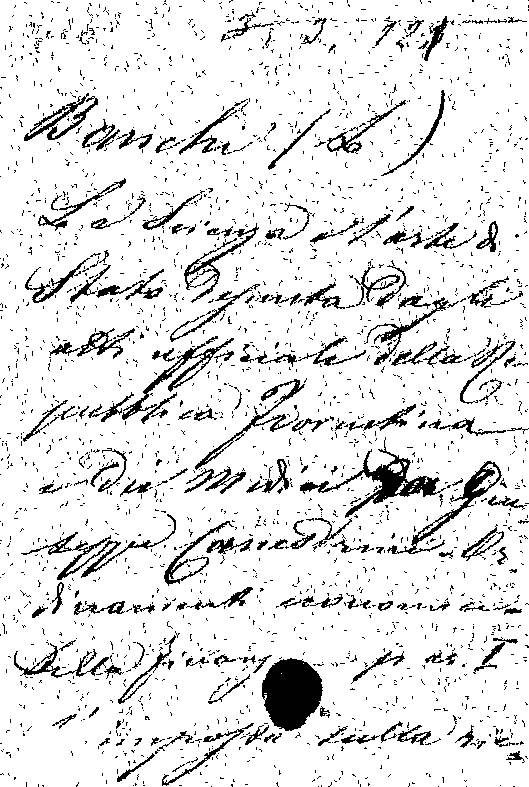 3, 3, 121
Banchi (L)
La Scienza e l'arte di
Stato desunta dagli
atti ufficiali della Re
pubblica Fiorentina
e dei Medici per Giu
seppe Canestrini - Or
dinamenti economici -
della finanz par. I
l'imposta sulla ric